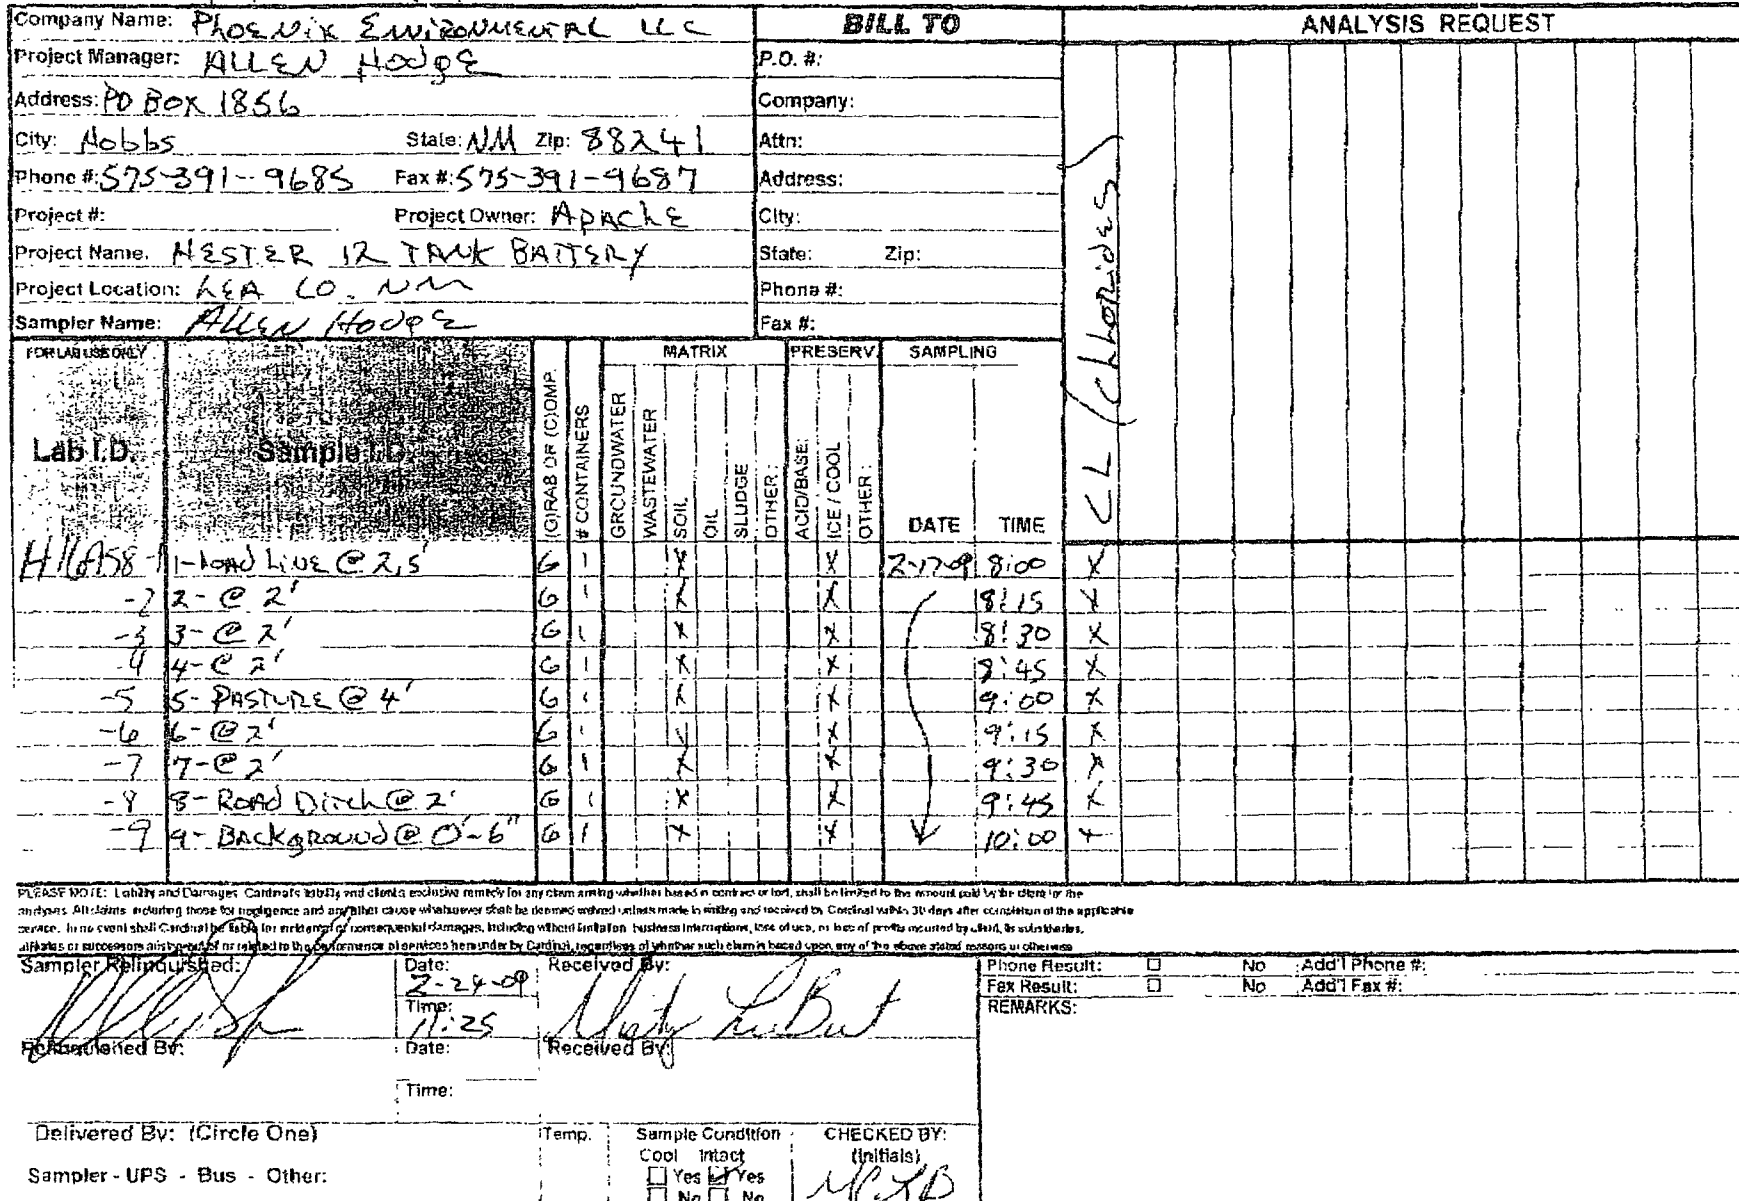 Company Name: Phoenix Environmental LLC
BILL TO
ANALYSIS REQUEST
Project Manager: Allen Hodge
P.O. #:
Address: PO Box 1856
Company:
City: Hobbs State: NM Zip: 88241
Attn:
Phone #: 575-391-9685 Fax #: 575-391-9687
Address:
Project #: Project Owner: Apache
City:
Project Name. HESTER 12 TANK BATTERY
State: Zip:
Project Location: LEA CO. NM
Phone #:
Sampler Name: Allen Hodge
Fax #:
CL (Chlorides)
FOR LAB USE ONLY
MATRIX
PRESERV.
SAMPLING
Lab I.D.
Sample I.D.
(G)RAB OR (C)OMP.
# CONTAINERS
GROUNDWATER
WASTEWATER
SOIL
OIL
SLUDGE
OTHER:
ACID/BASE:
ICE / COOL
OTHER:
DATE
TIME
-1 1-Load Line @ 2.5' G 1 X X 2-17-09 8:00 X
-2 2- @ 2' G 1 X X 8:15 X
-3 3- @ 2' G 1 X X 8:30 X
-4 4- @ 2' G 1 X X 8:45 X
-5 5- PASTURE @ 4' G 1 X X 9:00 X
-6 6- @ 2' G 1 X X 9:15 X
-7 7- @ 2' G 1 X X 9:30 X
-8 8- Road Ditch @ 2' G 1 X X 9:45 X
-9 9- Background @ 0'-6" G 1 X X 10:00 X
PLEASE NOTE: Liability and Damages. Cardinal's liability and client's exclusive remedy for any claim arising whether based in contract or tort, shall be limited to the amount paid by the client for the
analyses. All claims including those for negligence and any other cause whatsoever shall be deemed waived unless made in writing and received by Cardinal within 30 days after completion of the applicable
service. In no event shall Cardinal be liable for incidental or consequential damages, including without limitation, business interruptions, loss of use, or loss of profits incurred by client, its subsidiaries,
affiliates or successors arising out of or related to the performance of services hereunder by Cardinal, regardless of whether such claim is based upon any of the above stated reasons or otherwise
Sampler Relinquished:
Date: 2-24-09
Time: 11:25
Received By:
Phone Result: No Add'l Phone #:
Fax Result: No Add'l Fax #:
REMARKS:
Relinquished By:
Date:
Time:
Received By:
Delivered By: (Circle One)
Sampler - UPS - Bus - Other:
Temp.
Sample Condition
Cool Intact
Yes Yes
No No
CHECKED BY:
(Initials)